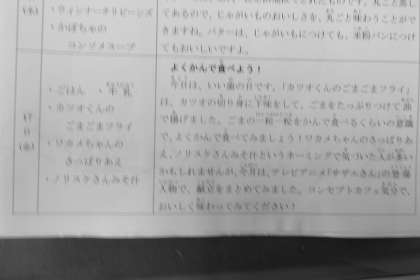 (木)
・ウィンナーチリビーンズ
・かぼちゃの
コンソメスープ
てあるので、じゃがいものおいしさを、丸ごと味わうことがで
きますね。バターは、じゃがいもにつけても、米粉パンにつけ
てもおいしいですよ。
日
(金)
・ごはん ・牛乳
・カツオくんの
ごまごまフライ
・ワカメちゃんの
さっぱりあえ
・ノリスケさんみそ汁
よくかんで食べよう！
今日は、いい歯の日です。「カツオくんのごまごまフライ」
は、カツオの切り身に下味をして、ごまをたっぷりつけて油
で揚げました。ごまの一粒一粒をかんで食べるくらいの意識
で、よくかんで食べてみましょう！ワカメちゃんのさっぱりあ
え、ノリスケさんみそ汁というネーミングで気づいた人が多い
かもしれませんが、今月は、テレビアニメ「サザエさん」の登場
人物で、献立をまとめてみました。コンセプトカフェ気分で、
おいしく味わってみてください！